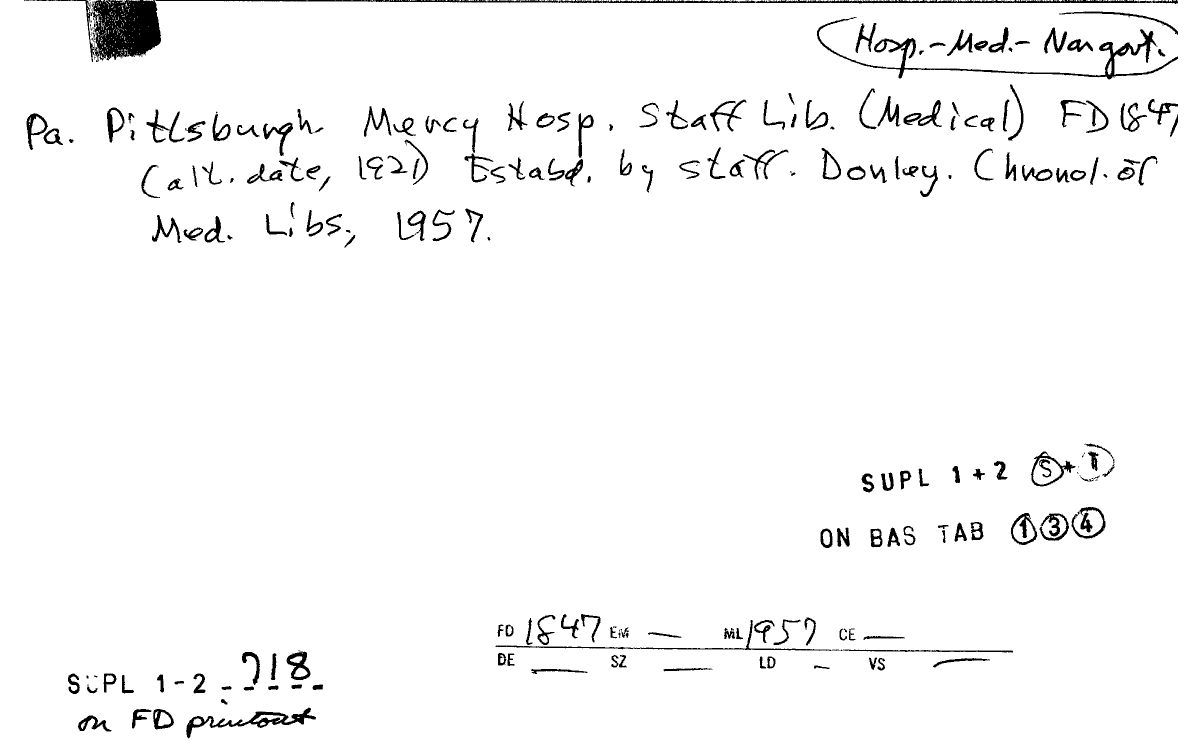 Hosp.-Med.- Nongovt.
Pa. Pittsburgh Mercy Hosp. Staff Lib. (Medical) FD 1847
(alt. date, 1921) Estabd. by staff. Donley. Chronol. of
Med. Libs, 1957.
SUPL 1 + 2 S + T
ON BAS TAB 1 3 4
FD 1847 EM — ML 1957 CE —
DE — SZ — LD — VS —
SUPL 1-2 718
on FD printout